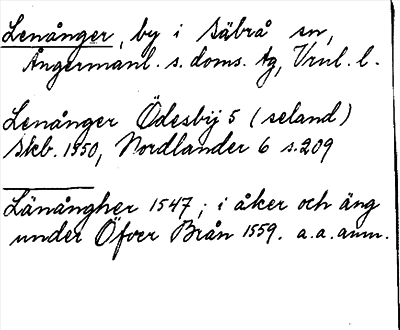 Lenånger, by i Säbrå sn,
Ångermanl. s. doms. tg, Vnl. l.
Lenånger Ödesbÿ 5 (seland)
Skb. 1550, Nordlander 6 s. 209
Länångher 1547; i åker och äng
under Öfver Brån 1559. a.a. anm.